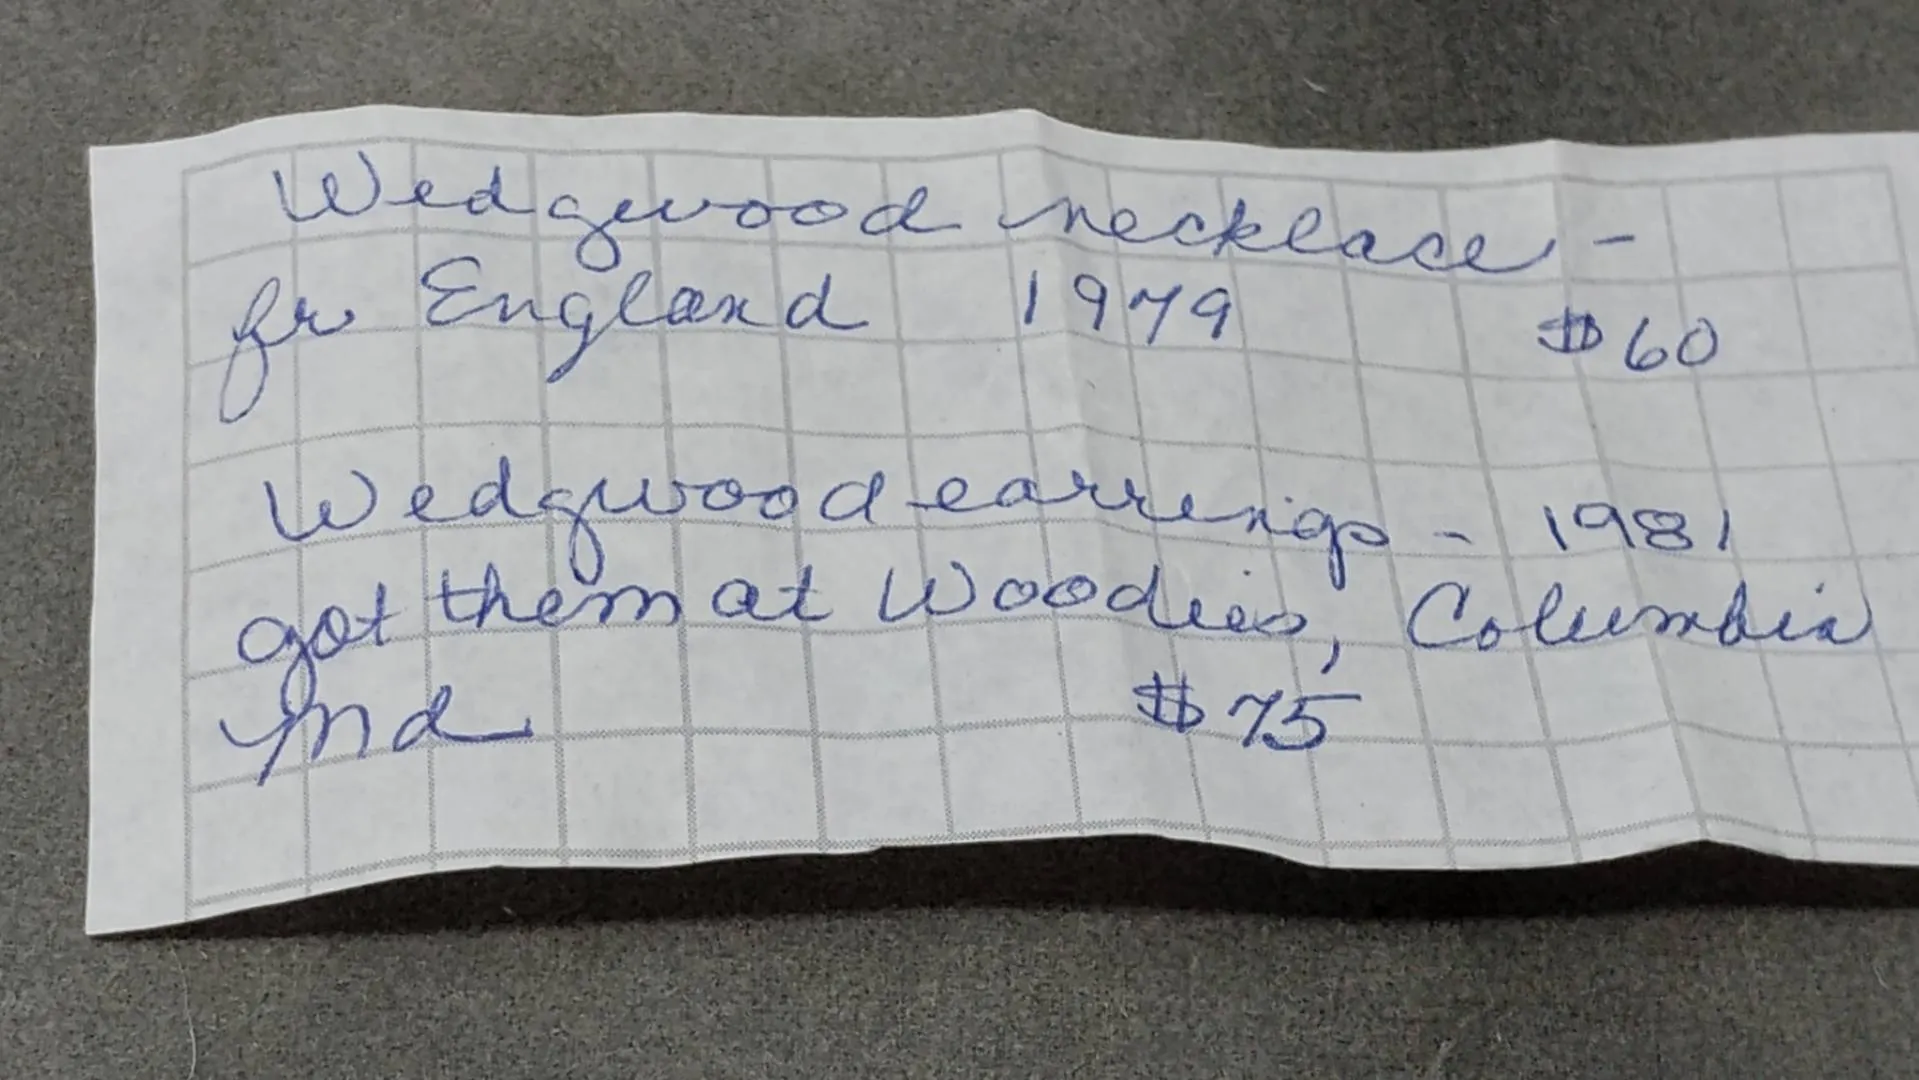 Wedgwood necklace -
fr England 1979 $60
Wedgwood earrings - 1981
got them at Woodies, Columbia
Md $75